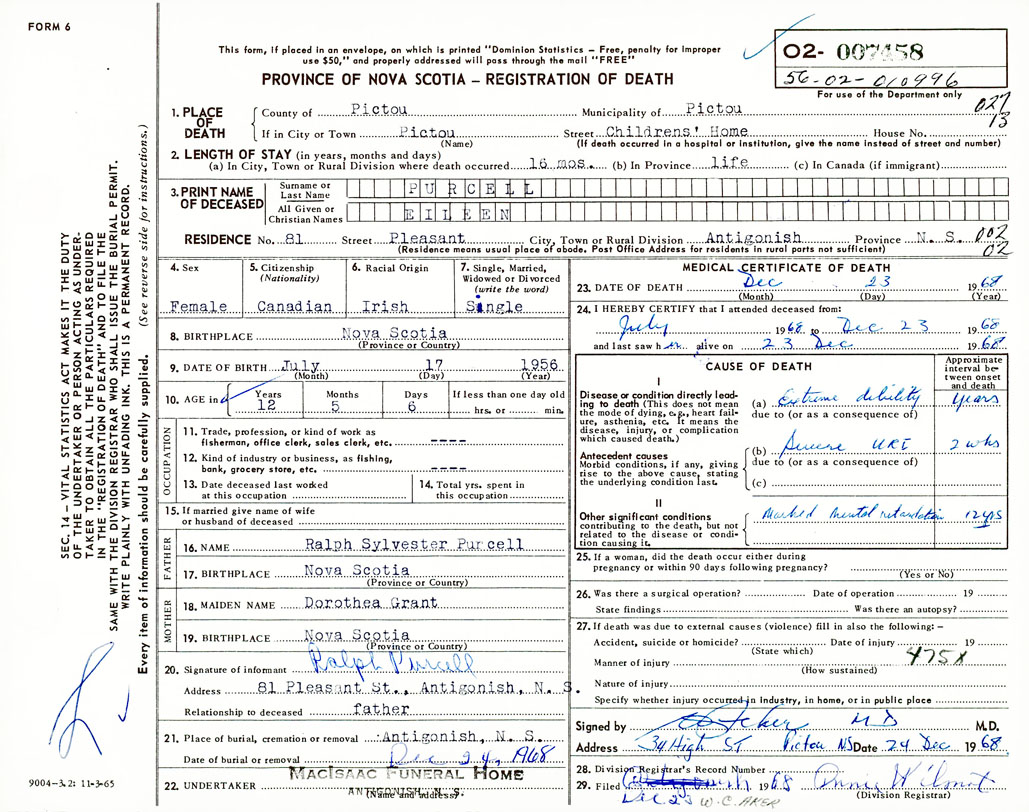 FORM 6
This form, if placed in an envelope, on which is printed "Dominion Statistics – Free, penalty for improper
use $50," and properly addressed will pass through the mail "FREE"
PROVINCE OF NOVA SCOTIA – REGISTRATION OF DEATH
02- 007458
56-02-010996
For use of the Department only
027
13
1. PLACE OF DEATH
County of Pictou Municipality of Pictou
If in City or Town Pictou Street Childrens' Home House No.
(Name) (If death occurred in a hospital or institution, give the name instead of street and number)
2. LENGTH OF STAY (in years, months and days)
(a) In City, Town or Rural Division where death occurred 16 mos. (b) In Province life (c) In Canada (if immigrant)
3. PRINT NAME OF DECEASED
Surname or Last Name PURCELL
All Given or Christian Names EILEEN
RESIDENCE No. 81 Street Pleasant City, Town or Rural Division Antigonish Province N. S. 002
(Residence means usual place of abode. Post Office Address for residents in rural parts not sufficient) 02
4. Sex
Female
5. Citizenship
(Nationality)
Canadian
6. Racial Origin
Irish
7. Single, Married,
Widowed or Divorced
(write the word)
Single
8. BIRTHPLACE Nova Scotia
(Province or Country)
9. DATE OF BIRTH July 17 1956
(Month) (Day) (Year)
10. AGE in Years Months Days If less than one day old
12 5 6 hrs. or min.
OCCUPATION
11. Trade, profession, or kind of work as
fisherman, office clerk, sales clerk, etc. ----
12. Kind of industry or business, as fishing,
bank, grocery store, etc. ----
13. Date deceased last worked
at this occupation
14. Total yrs. spent in
this occupation
15. If married give name of wife
or husband of deceased
FATHER
16. NAME Ralph Sylvester Purcell
17. BIRTHPLACE Nova Scotia
(Province or Country)
MOTHER
18. MAIDEN NAME Dorothea Grant
19. BIRTHPLACE Nova Scotia
(Province or Country)
20. Signature of informant Ralph Purcell
Address 81 Pleasant St., Antigonish, N. S.
Relationship to deceased father
21. Place of burial, cremation or removal Antigonish, N. S.
Date of burial or removal Dec 24, 1968
22. UNDERTAKER MacIsaac Funeral Home
ANTIGONISH, N. S.
(Name and address)
MEDICAL CERTIFICATE OF DEATH
23. DATE OF DEATH Dec 23 1968
(Month) (Day) (Year)
24. I HEREBY CERTIFY that I attended deceased from:
July 1968 to Dec 23 1968
and last saw her alive on 23 Dec 1968
CAUSE OF DEATH
Approximate
interval be-
tween onset
and death
I
Disease or condition directly lead-
ing to death (This does not mean
the mode of dying, e.g., heart fail-
ure, asthenia, etc. It means the
disease, injury, or complication
which caused death.)
(a) Extreme dibility years
due to (or as a consequence of)
Antecedent causes
Morbid conditions, if any, giving
rise to the above cause, stating
the underlying condition last.
(b) Severe URI 2 wks
due to (or as a consequence of)
(c)
II
Other significant conditions
contributing to the death, but not
related to the disease or condi-
tion causing it.
Marked mental retardation 12 yrs
25. If a woman, did the death occur either during
pregnancy or within 90 days following pregnancy?
(Yes or No)
26. Was there a surgical operation? Date of operation 19
State findings Was there an autopsy?
27. If death was due to external causes (violence) fill in also the following: –
Accident, suicide or homicide? Date of injury 19
(State which)
475X
Manner of injury
(How sustained)
Nature of injury
Specify whether injury occurred in industry, in home, or in public place
Signed by MD M.D.
Address 34 High St Pictou NS Date 24 Dec 1968
28. Division Registrar's Record Number
29. Filed 1968 Annie Wilmot
(Division Registrar)
Dec 23 W. C. AKER
SEC. 14 – VITAL STATISTICS ACT MAKES IT THE DUTY
OF THE UNDERTAKER OR PERSON ACTING AS UNDER-
TAKER TO OBTAIN ALL THE PARTICULARS REQUIRED
IN THE "REGISTRATION OF DEATH" AND TO FILE THE
SAME WITH THE DIVISION REGISTRAR WHO SHALL ISSUE THE BURIAL PERMIT.
WRITE PLAINLY WITH UNFADING INK. THIS IS A PERMANENT RECORD.
Every item of information should be carefully supplied. (See reverse side for instructions.)
9004-3.2: 11-3-65